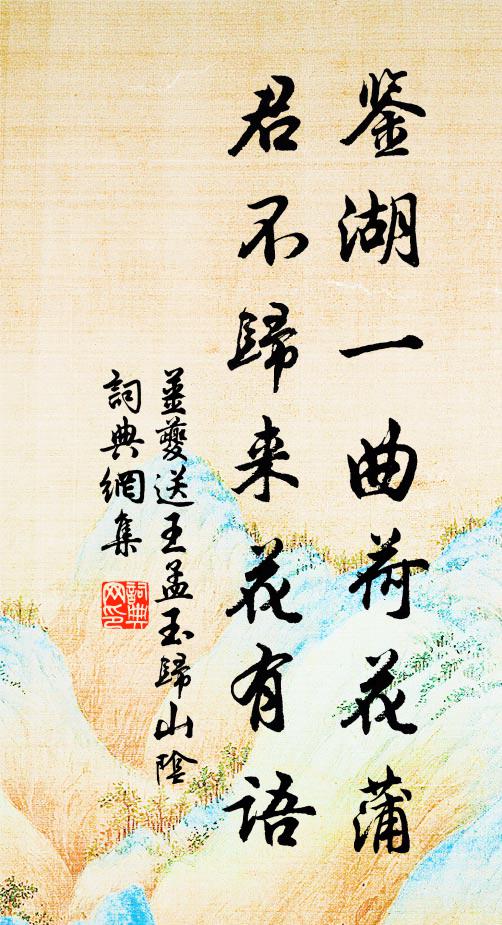 鉴湖一曲荷花蒲
君不歸来花有语
姜夔送王孟玉歸山陰
詞典網集
詞典网印